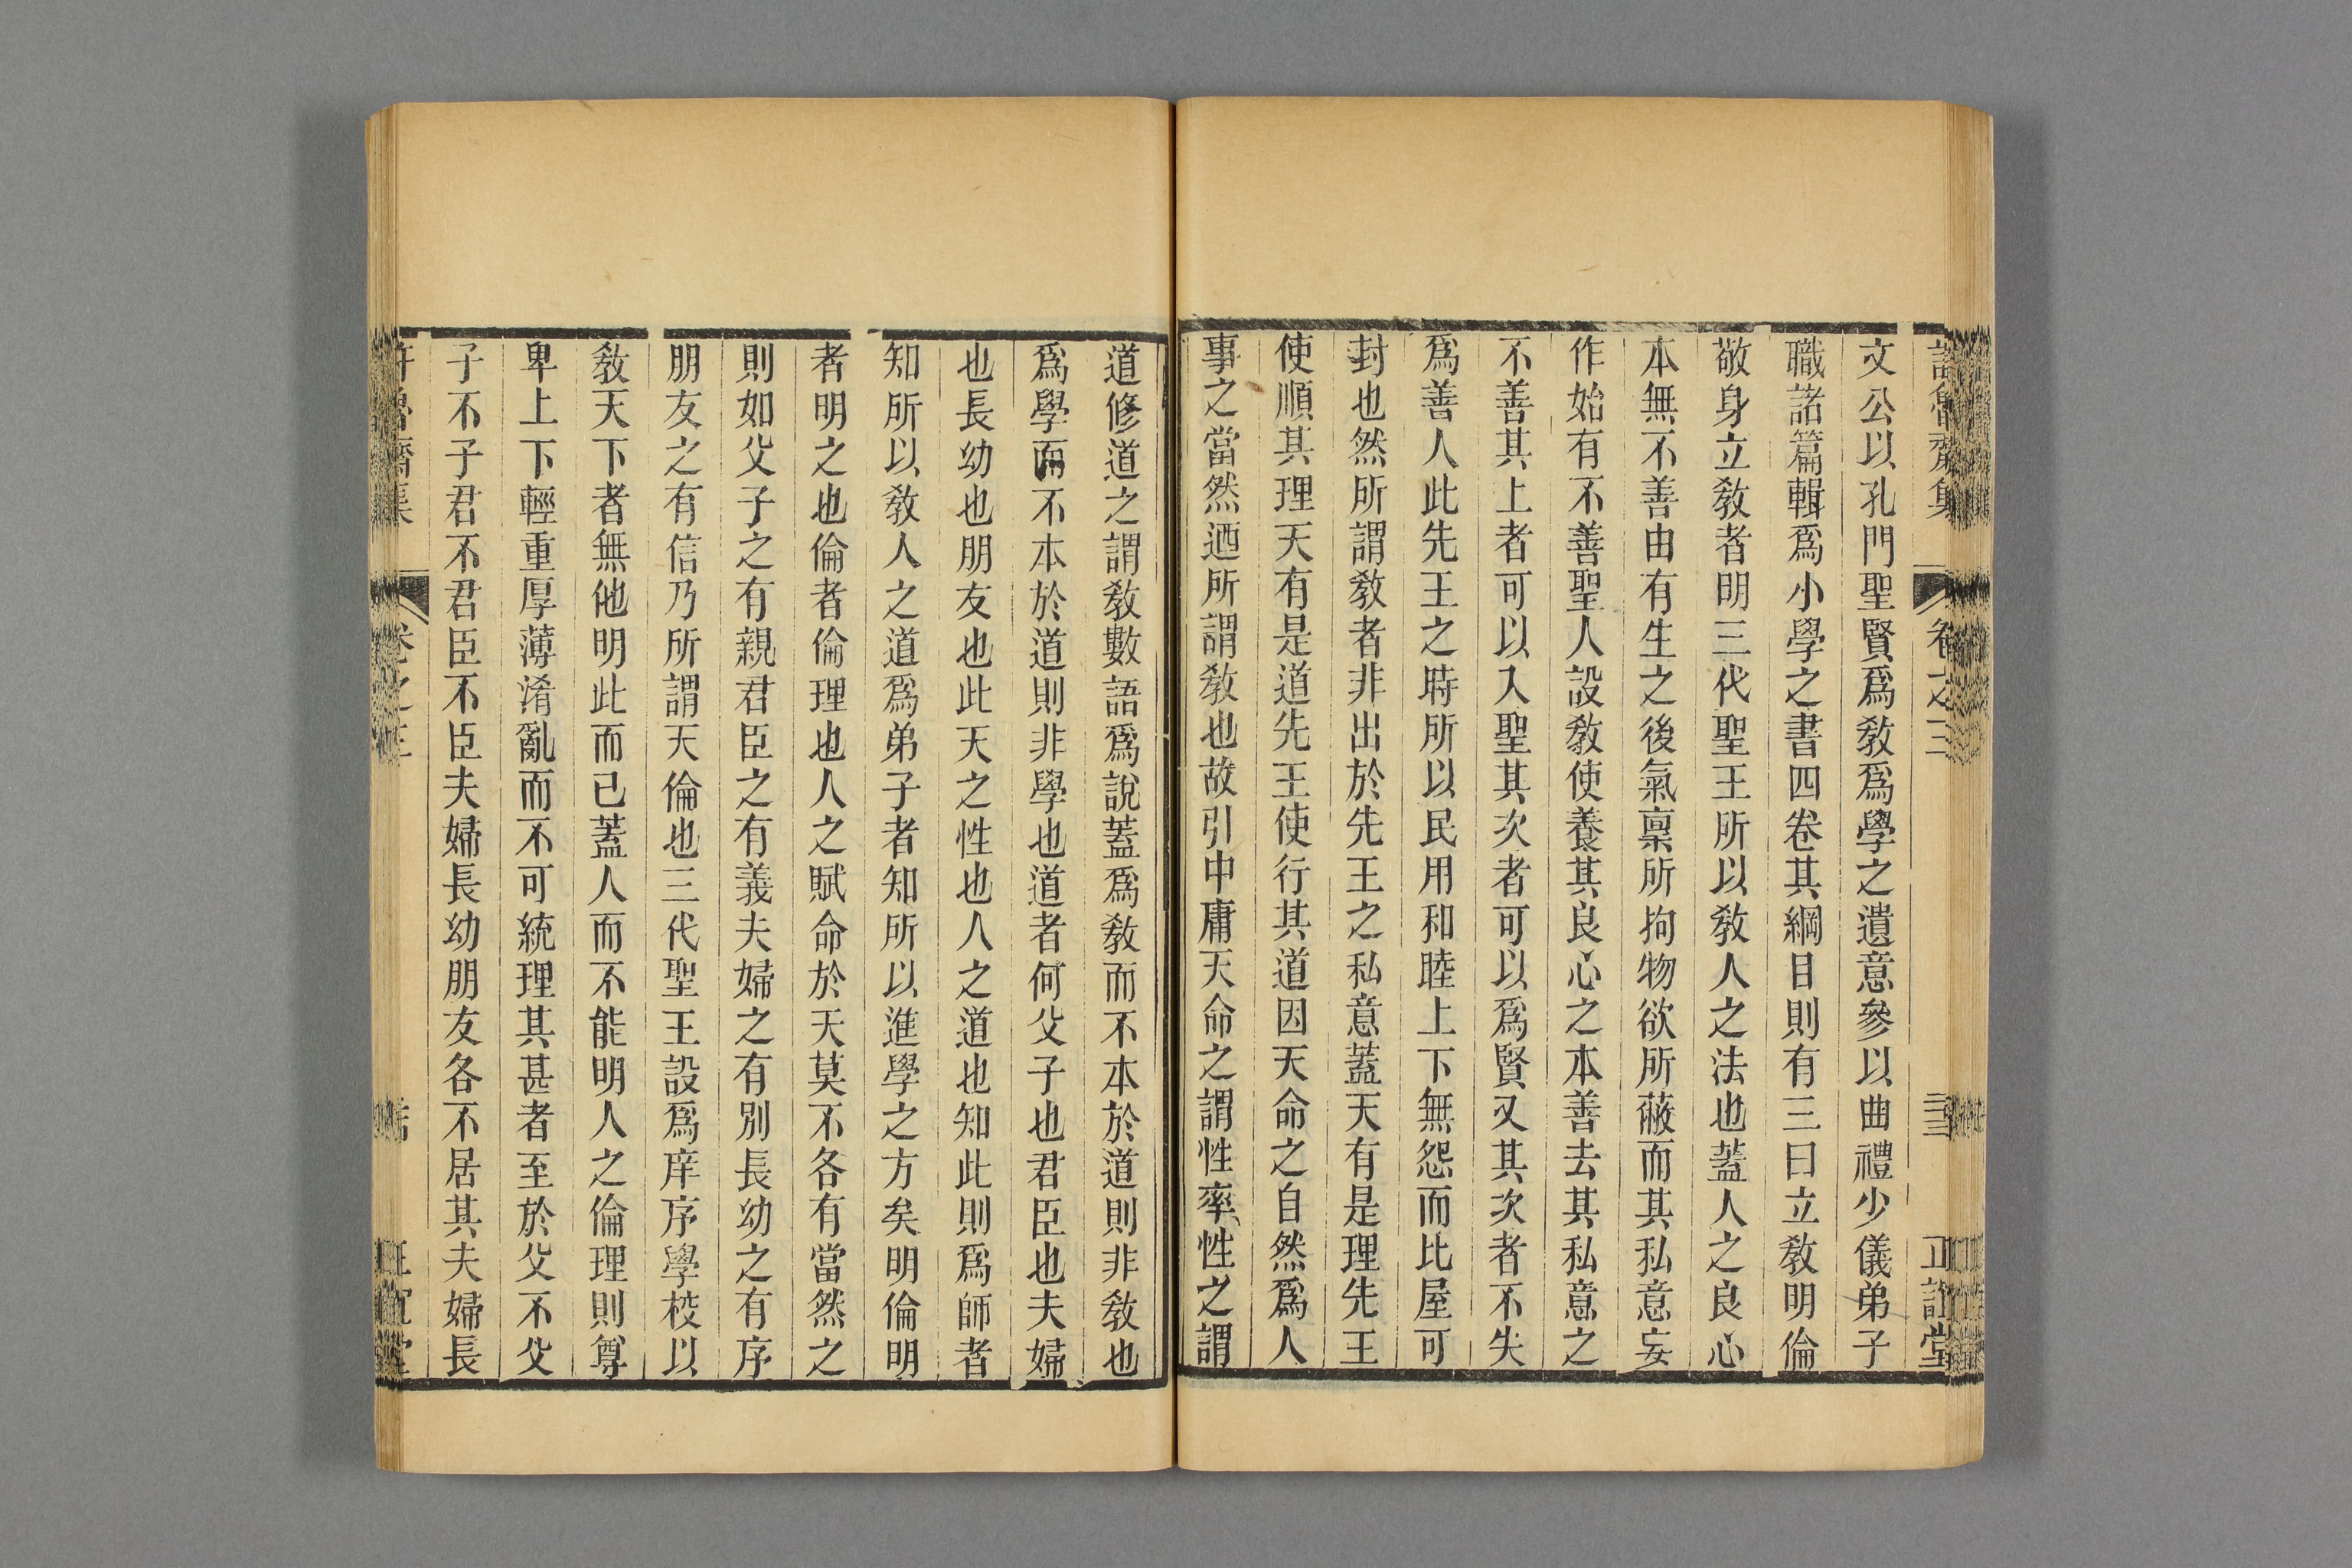 文公以孔門聖賢爲敎爲學之遺意參以曲禮少儀弟子
職諸篇輯爲小學之書四卷其綱目則有三曰立敎明倫
敬身立敎者明三代聖王所以敎人之法也蓋人之良心
本無不善由有生之後氣稟所拘物欲所蔽而其私意妄
作始有不善聖人設敎使養其良心之本善去其私意之
不善其上者可以入聖其次者可以爲賢又其次者不失
爲善人此先王之時所以民用和睦上下無怨而比屋可
封也然所謂敎者非出於先王之私意蓋天有是理先王
使順其理天有是道先王使行其道因天命之自然爲人
事之當然迺所謂敎也故引中庸天命之謂性率性之謂
道修道之謂敎數語爲說蓋爲敎而不本於道則非敎也
爲學而不本於道則非學也道者何父子也君臣也夫婦
也長幼也朋友也此天之性也人之道也知此則爲師者
知所以敎人之道爲弟子者知所以進學之方矣明倫明
者明之也倫者倫理也人之賦命於天莫不各有當然之
則如父子之有親君臣之有義夫婦之有別長幼之有序
朋友之有信乃所謂天倫也三代聖王設爲庠序學校以
敎天下者無他明此而已蓋人而不能明人之倫理則尊
卑上下輕重厚薄淆亂而不可統理其甚者至於父不父
子不子君不君臣不臣夫婦長幼朋友各不居其夫婦長